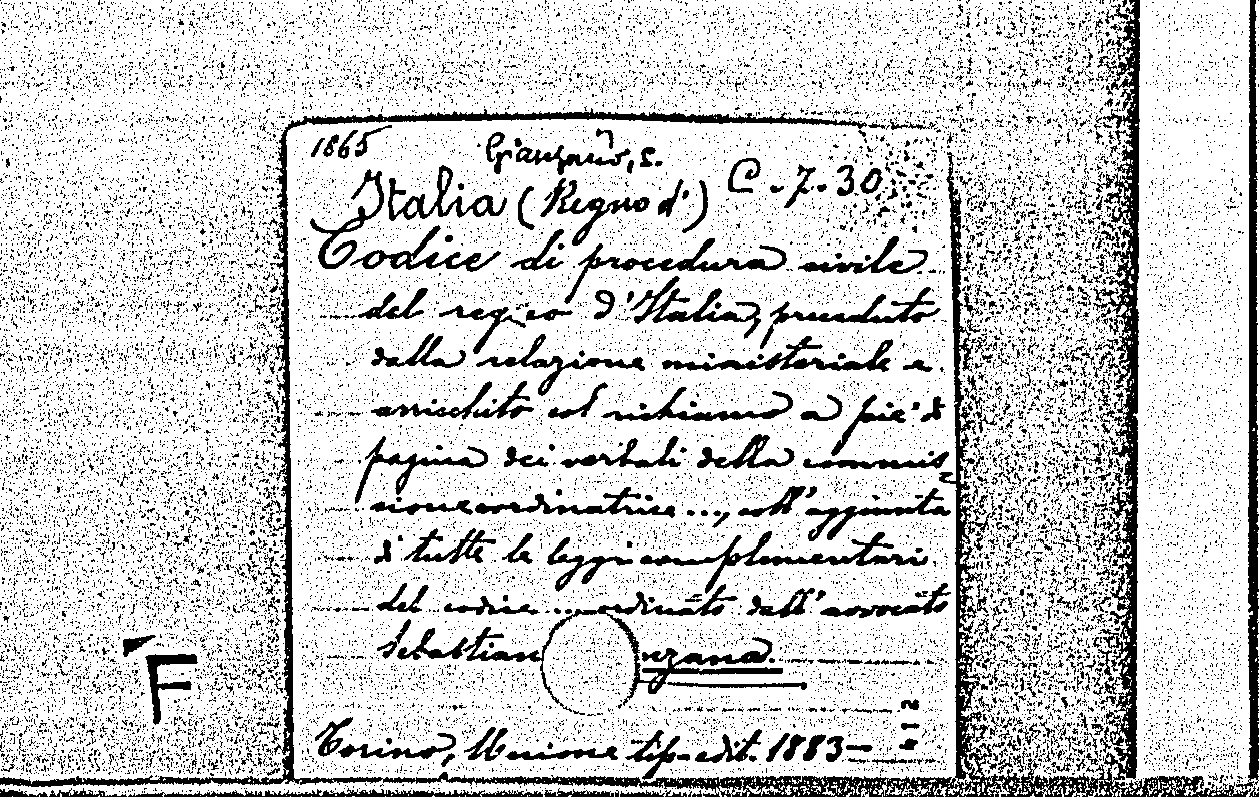 1865
Gianzana, S.
Italia (Regno d') C. 7. 30
Codice di procedura civile
del regno d'Italia, preceduto
dalla relazione ministeriale e
arricchito col richiamo a pie' di
pagina dei verbali della commis
sione coordinatrice ..., coll'aggiunta
di tutte le leggi complementari
del codice ... ordinato dall'avvocato
Sebastian nzana.
Torino, Unione tip-edit. 1883-
F